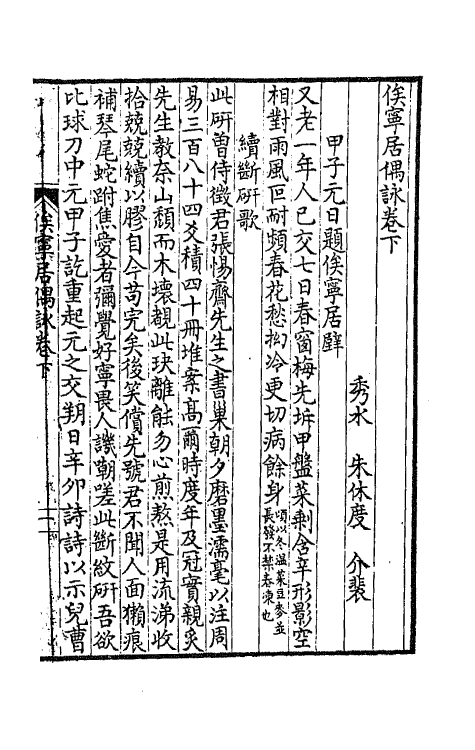 俟寧居偶詠卷下
秀水 朱休度 介裴
甲子元日題俟寧居壁
又老一年人已交七日春窗梅先坼甲盤菜剩含辛形影空
相對雨風叵耐頻春花愁抝冷更切病餘身頃以冬溫菜豆麥並長發不禁春凍也
續斷研歌
此研曾侍徵君張惕齋先生之書巢朝夕磨墨濡毫以注周
易三百八十四爻積四十冊堆案高爾時度年及冠實親炙
先生教奈山頹而木壞覩此玦離能勿心煎熬是用流涕收
拾兢兢續以膠自今苟完矣後笑償先號君不聞人面獺痕
補琴尾蛇跗焦愛者彌覺好寧畏人譏嘲嗟此斷紋研吾欲
比球刀中元甲子訖重起元之交朔日辛卯詩詩以示兒曹
俟寧居偶詠卷下
一